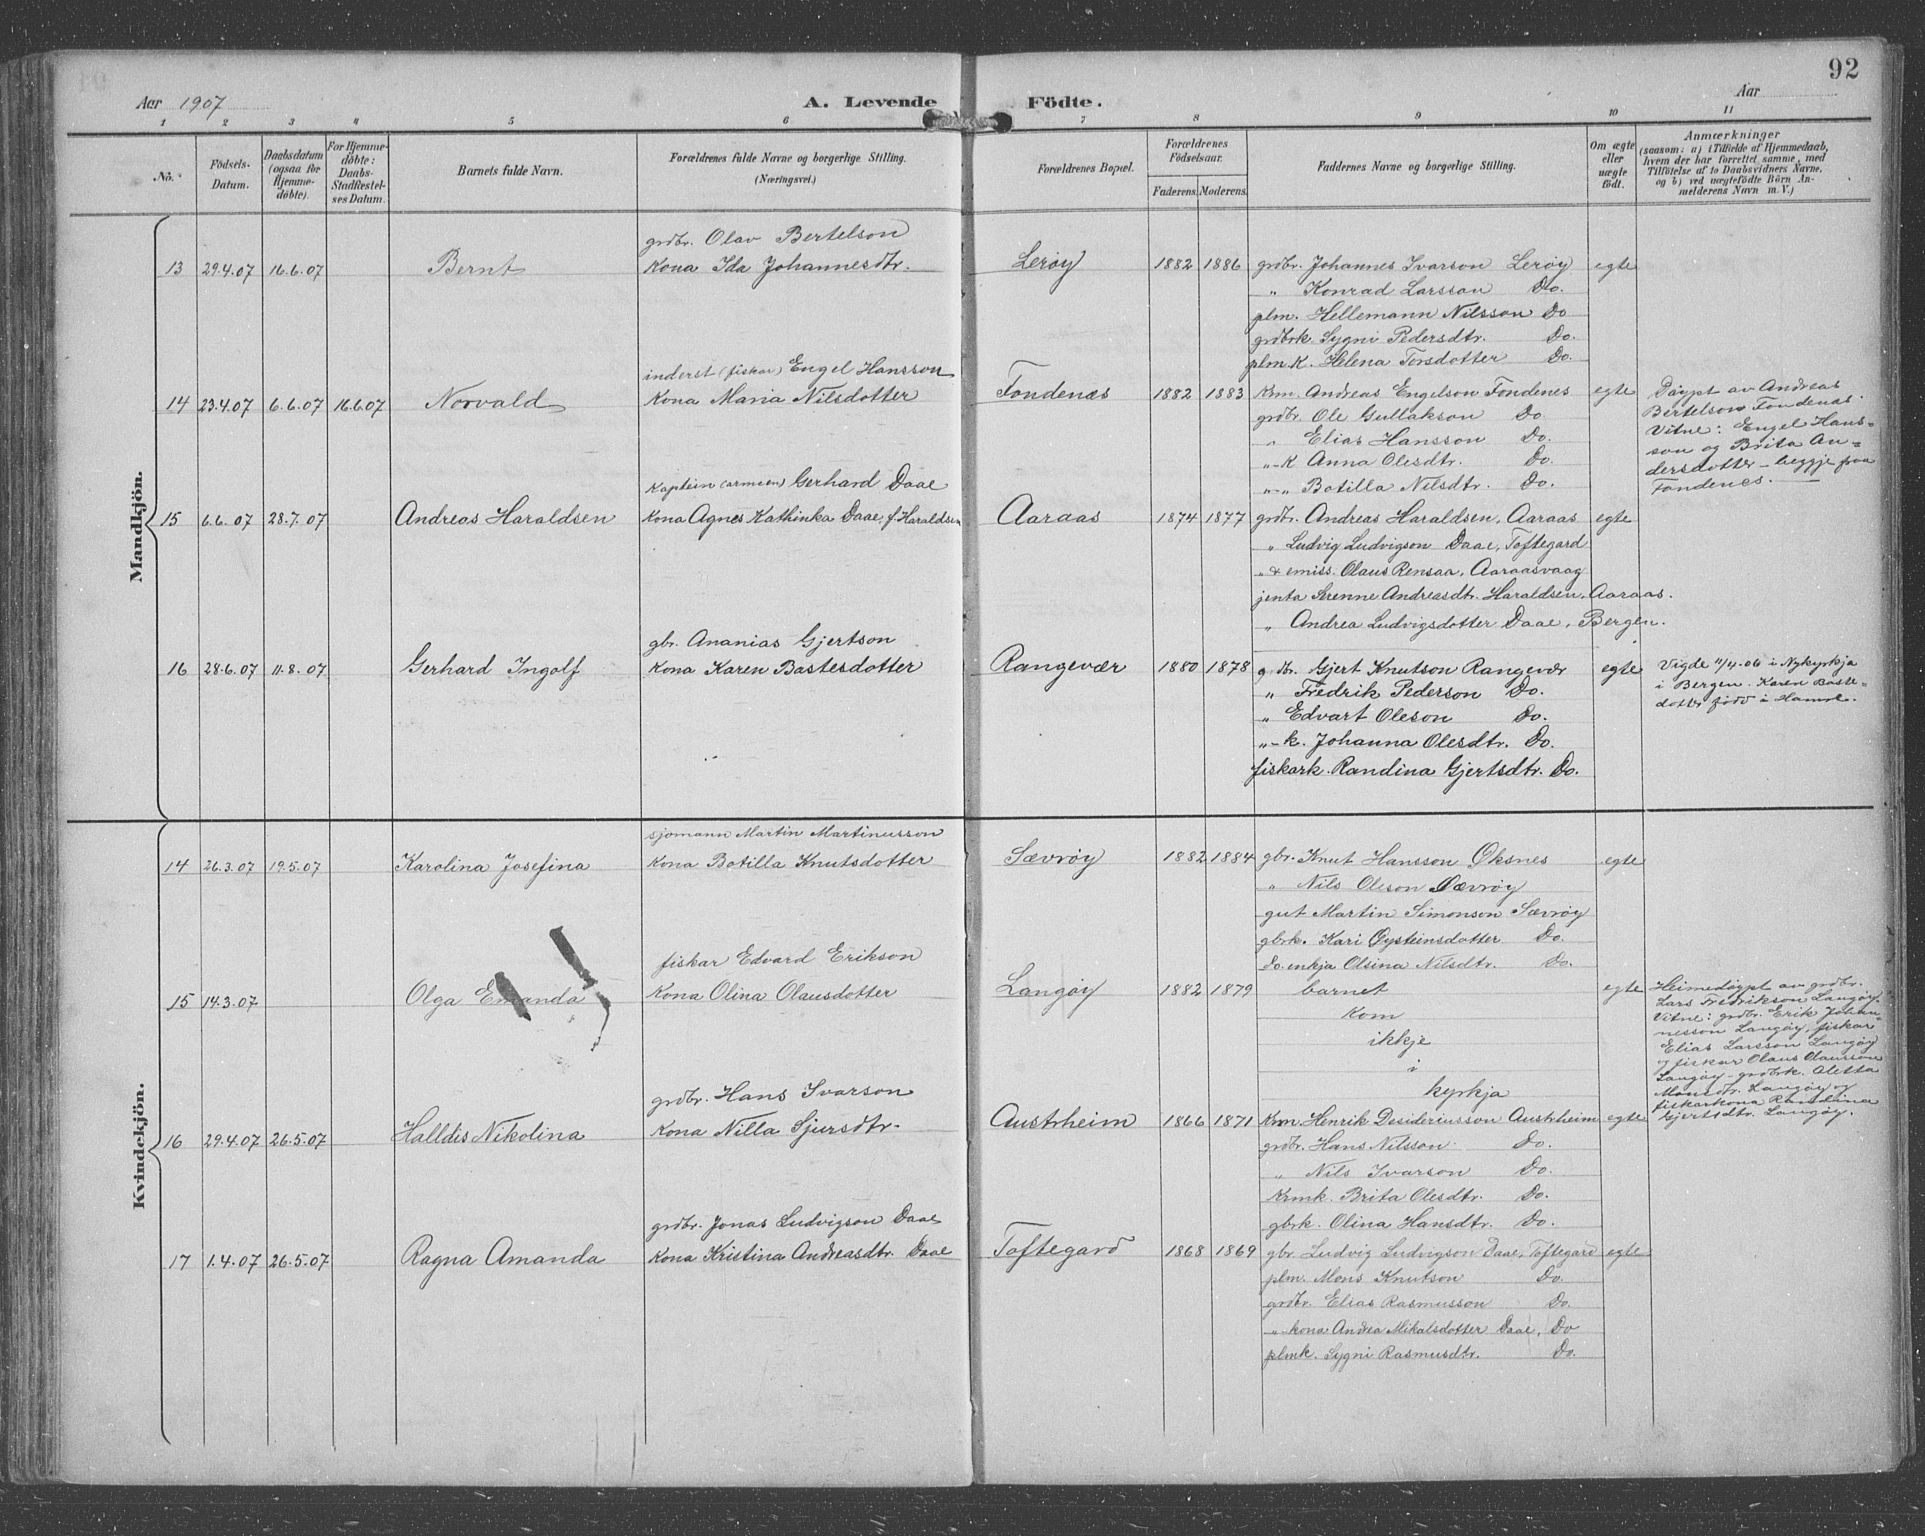 92
Aar 1907
A. Levende Födte.
Aar
1 2 3 4 5 6 7 8 9 10 11
No.
Födsels-Datum.
Daabsdatum (ogsaa for Hjemme-döbte).
For Hjemme-döbte: Daabs-Stadfæstel-ses Datum.
Barnets fulde Navn.
Forældrenes fulde Navne og borgerlige Stilling.
(Næringsvei.)
Forældrenes Bopæl.
Forældrenes Födselsaar.
Faderens. Moderens.
Faddernes Navne og borgerlige Stilling.
Om ægte eller uægte födt.
Anmærkninger
(saasom: a) i Tilfælde af Hjemmedaab, hvem der har forrettet samme, med Tilföielse af to Daabsvidners Navne, og b) ved uægtefödte Börn An-melderens Navn m. V.)
Mandkjön.
grdbr. Olav Bertelson
13 29.4.07 16.6.07 Bernt Kona Ida Johannesdtr. Lerøy 1882 1886 grdbr. Johannes Ivarson Lerøy egte
" Konrad Larsson Do.
plm. Hellemann Nilsson Do
grdbrk. Sygni Pedersdtr. Do.
plm.K. Helena Torsdotter Do.
inderst (fiskar) Engel Hansson
14 23.4.07 6.6.07 16.6.07 Norvald Kona Maria Nilsdotter Fondenæs 1882 1883 Krm. Andreas Engelson Fondenes egte Døypt av Andreas
grdbr. Ole Gullakson Do. Bertelson Fondenæs.
" Elias Hansson Do. Vitne: Engel Hans-
"-K Anna Olesdtr. Do. son og Brita An-
"-" Botilla Nilsdtr. Do. dersdotter - beggje fraa
Fondenes.
Kaptein (armeen) Gerhard Daae
15 6.6.07 28.7.07 Andreas Haraldsen Kona Agnes Kathinka Daae, f. Haraldsen Aaraas 1874 1877 grdbr. Andreas Haraldsen, Aaraas egte
" Ludvig Ludvigson Daae, Toftegard
" & emiss. Olaus Rensaa, Aaraasvaag
jenta Serenne Andreasdtr. Haraldsen, Aaraas.
" Andrea Ludvigsdotter Daae, Bergen.
gbr. Ananias Gjertson
16 28.6.07 11.8.07 Gerhard Ingolf Kona Karen Bastesdotter Rangevær 1880 1878 grdbr. Gjert Knutson Rangevær egte Vigde 11/4-06 i Nykyrkja
" Fredrik Pederson Do. i Bergen. Karen Baste-
" Edvart Oleson Do. dotter född i Hamre.
"-k. Johanna Olesdtr. Do.
fiskark. Randina Gjertsdtr. Do.
Kvindekjön.
sjomann Martin Martinusson
14 26.3.07 19.5.07 Karolina Josefina Kona Botilla Knutsdotter Sævrøy 1882 1884 gbr. Knut Hansson Øksnes egte
" Nils Oleson Sævrøy
gut Martin Simonson Sævrøy
gbrk. Kari Øysteinsdotter Do.
Do. enkja Olsina Nilsdtr. Do.
fiskar Edvard Erikson
15 14.3.07 Olga Emanda Kona Olina Olausdotter Langøy 1882 1879 barnet egte Heimedøypt av grdbr.
kom Lars Fredrikson Langøy.
ikkje Vitne: grdbr. Erik Johan-
i nesson Langøy, fiskar
kyrkja Elias Larsson Langøy
og fiskar Olaus Olausson
Langøy - grdbrk. Aletta
Monsdtr. Langøy og
fiskarkona Randina
Gjertsdtr. Langøy.
grdbr. Hans Ivarson
16 29.4.07 26.5.07 Halldis Nikolina Kona Nilla Sjursdtr. Austrheim 1866 1871 Krm. Henrik Desideriusson Austrheim egte
grdbr. Hans Nilsson Do.
" Nils Ivarson Do.
Krmk. Brita Olesdtr. Do.
gbrk. Olina Hansdtr. Do.
grdbr. Jonas Ludvigson Daae
17 1.4.07 26.5.07 Ragna Amanda Kona Kristina Andreasdtr. Daae Toftegard 1868 1869 gbr. Ludvig Ludvigson Daae, Toftegard egte
plm. Mons Knutson Do.
grdbr. Elias Rasmusson Do.
"-kona Andrea Mikalsdotter Daae, Do
plmk. Sygni Rasmusdtr. Do.